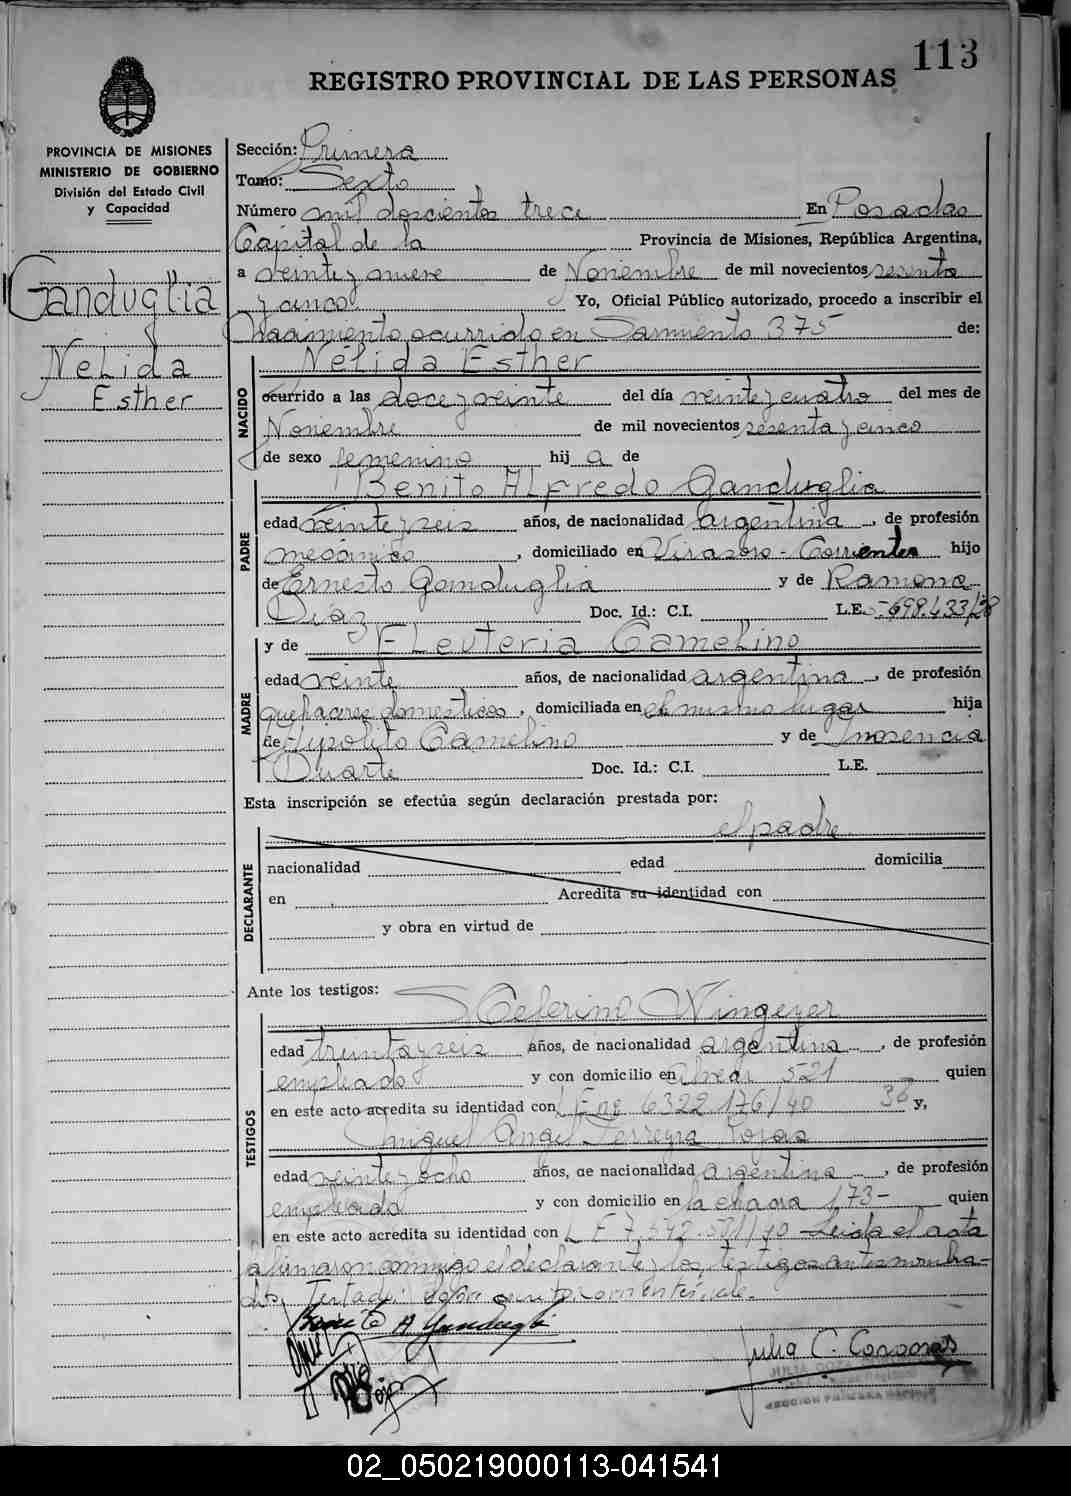 113
REGISTRO PROVINCIAL DE LAS PERSONAS
PROVINCIA DE MISIONES
MINISTERIO DE GOBIERNO
División del Estado Civil
y Capacidad
Ganduglia
Nelida
Esther
Sección: Primera
Tomo: Sexto
Número mil doscientos trece En Posadas
Capital de la Provincia de Misiones, República Argentina,
a veinte y nueve de Noviembre de mil novecientos sesenta
y cinco Yo, Oficial Público autorizado, procedo a inscribir el
Nacimiento ocurrido en Sarmiento 375 de:
NACIDO
Nélida Esther
ocurrido a las doce y veinte del día veinte y cuatro del mes de
Noviembre de mil novecientos sesenta y cinco
de sexo femenino hij a de
PADRE
Benito Alfredo Ganduglia
edad veinte y seis años, de nacionalidad argentina, de profesión
mecánico, domiciliado en Virasoro - Corrientes hijo
de Ernesto Ganduglia y de Ramona
Díaz Doc. Id.: C.I. L.E. 5.698.433/28
MADRE
y de Eleuteria Gamelino
edad veinte años, de nacionalidad argentina, de profesión
quehaceres domesticos, domiciliada en el mismo lugar hija
de Hipolito Gamelino y de Inosencia
Duarte Doc. Id.: C.I. L.E.
Esta inscripción se efectúa según declaración prestada por:
el padre
DECLARANTE
nacionalidad edad domicilia
en Acredita su identidad con
y obra en virtud de
Ante los testigos:
TESTIGOS
Ceferino Wingeyer
edad treinta y seis años, de nacionalidad argentina, de profesión
empleado y con domicilio en Alvear 521 quien
en este acto acredita su identidad con L E no 6322.176/40 38 y,
Miguel Angel Ferreyra Rojas
edad veinte y ocho años, de nacionalidad argentina, de profesión
empleado y con domicilio en la chacra 173- quien
en este acto acredita su identidad con L E 7.542. Leida el acta
la firmaron conmigo el declarante y los testigos antes nombra-
dos. Testado: sobre vale.
Benito A Ganduglia
Julia C.
JULIA
SECCION PRIMERA
02_050219000113-041541